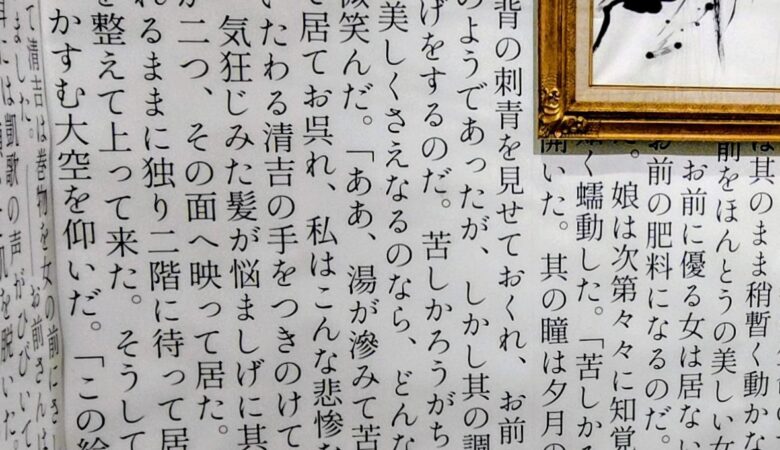 は其のまま稍暫く動かな
前をほんとうの美しい女
お前に優る女は居ない
お前の肥料になるのだ。
。娘は次第々々に知覚
く蠕動した。「苦しかる
開いた。其の瞳は夕月の
背の刺青を見せておくれ、お前
のようであったが、しかし其の調
げをするのだ。苦しかろうがち
美しくさえなるのなら、どんな
微笑んだ。「ああ、湯が滲みて苦
居てお呉れ、私はこんな悲惨な
いたわる清吉の手をつきのけて
気狂じみた髪が悩ましげに其
が二つ、その面へ映って居た。
れるままに独り二階に待って居
を整えて上って来た。そうして
かすむ大空を仰いだ。「この絵
て清吉は巻物を女の前にさし
ました。――お前さんは
には凱歌の声がひびいて
肌を脱いだ。